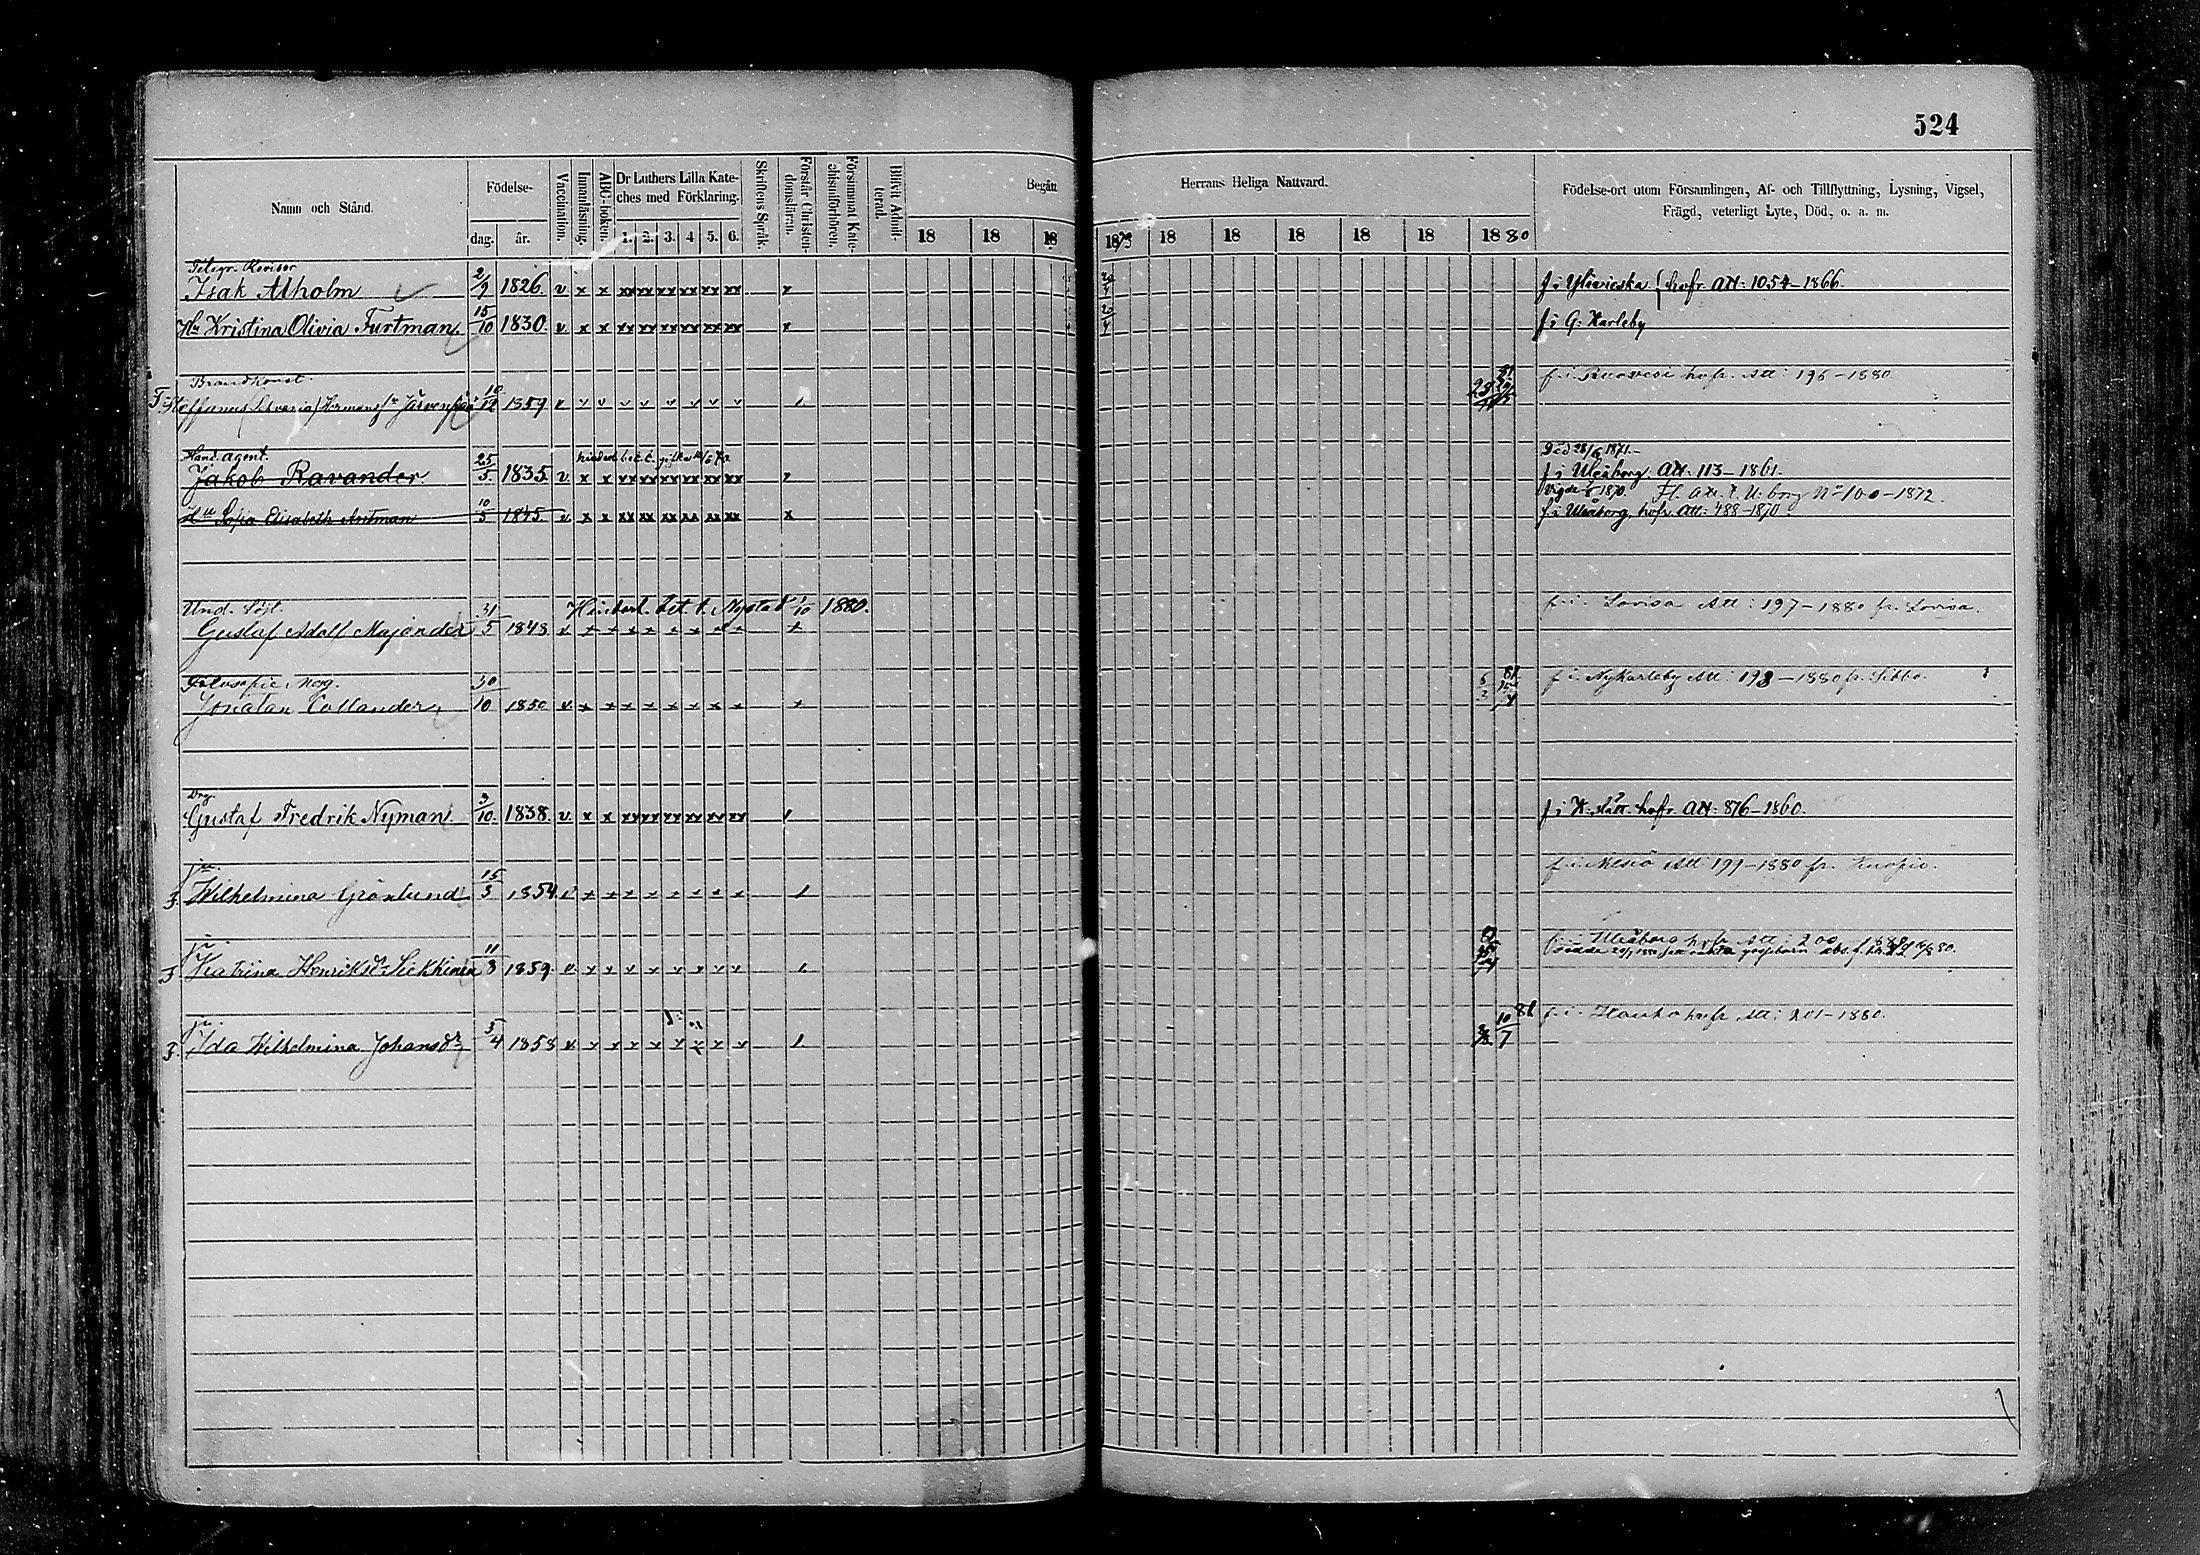 524
Namn och Stånd.
Födelse-
dag. år.
Vaccination.
Innanläsning.
ABC-boken.
Dr Luthers Lilla Kate-
ches med Förklaring.
1. 2. 3. 4 5. 6.
Skriftens Språk.
Förstår Christen-
domsläran.
Försummat Kate-
chismiförhören.
Blifvit Admit-
terad.
Begått Herrans Heliga Nattvard.
18 18 18 1873 18 18 18 18 18 1880
Födelse-ort utom Församlingen, Af- och Tillflyttning, Lysning, Vigsel,
Frägd, veterligt Lyte, Död, o. a. m.
Telegr. Revisor
Isak Alholm 2/9 1826. v x x xx xx xx xx xx xx x f. i Ylivieska hofr. Att: 1054-1866.
Hu Kristina Olivia Furtman 15/10 1830. v x x xx xx xx xx xx xx x f. i G: Karleby
Brandkonst.
10/12 1859 v v v v v v v v v f. i Ruovesi hofr. Att: 196-1880
Hand. agent. Död 28/6 1871.-
Jakob Ravander 25/5 1835 v x x xx xx xx xx xx xx x f. i Uleåborg. Att: 113-1861.
Vigde 1870. Fl. att. t. U:borg No 100-1872.
Hu Sofia Elisabeth Antman 10/5 1845. v x x xx xx xx xx xx xx x f. i Uleåborg, hofr. Att: 488-1870.
Und. Löjt. Hinderl. bet. t. Nystad 1/10 1880. f. i. Lovisa Att: 197-1880 fr. Lovisa.
Gustaf Adolf Majander 31/5 1843 v + + + + + + + + +
Filosofie Mag. f. i. Nykarleby Att: 198-1880 fr. Sibbo.
Jonatan Collander 30/10 1850 v + + + + + + + + +
Drg.
Gustaf Fredrik Nyman 3/10 1838. v x x xx xx xx xx xx xx f. i K: Lätt. hofr. Att: 876-1860.
pn f. i. Att: 199-1880 fr. Kuopio.
F. Wilhelmina Grönlund 15/3 1854 v + + + + + + + +
pn. Uleåborg hofr Att: 200
F. Katriina Henriksdr Siekkinen 11/8 1859. v v v v v v v v v
pn. f. i. Hauho hofr Att: 201-1880.
F. Ida Wilhelmina Johansdr 5/4 1858 v v v v v v v v v 10/7 81